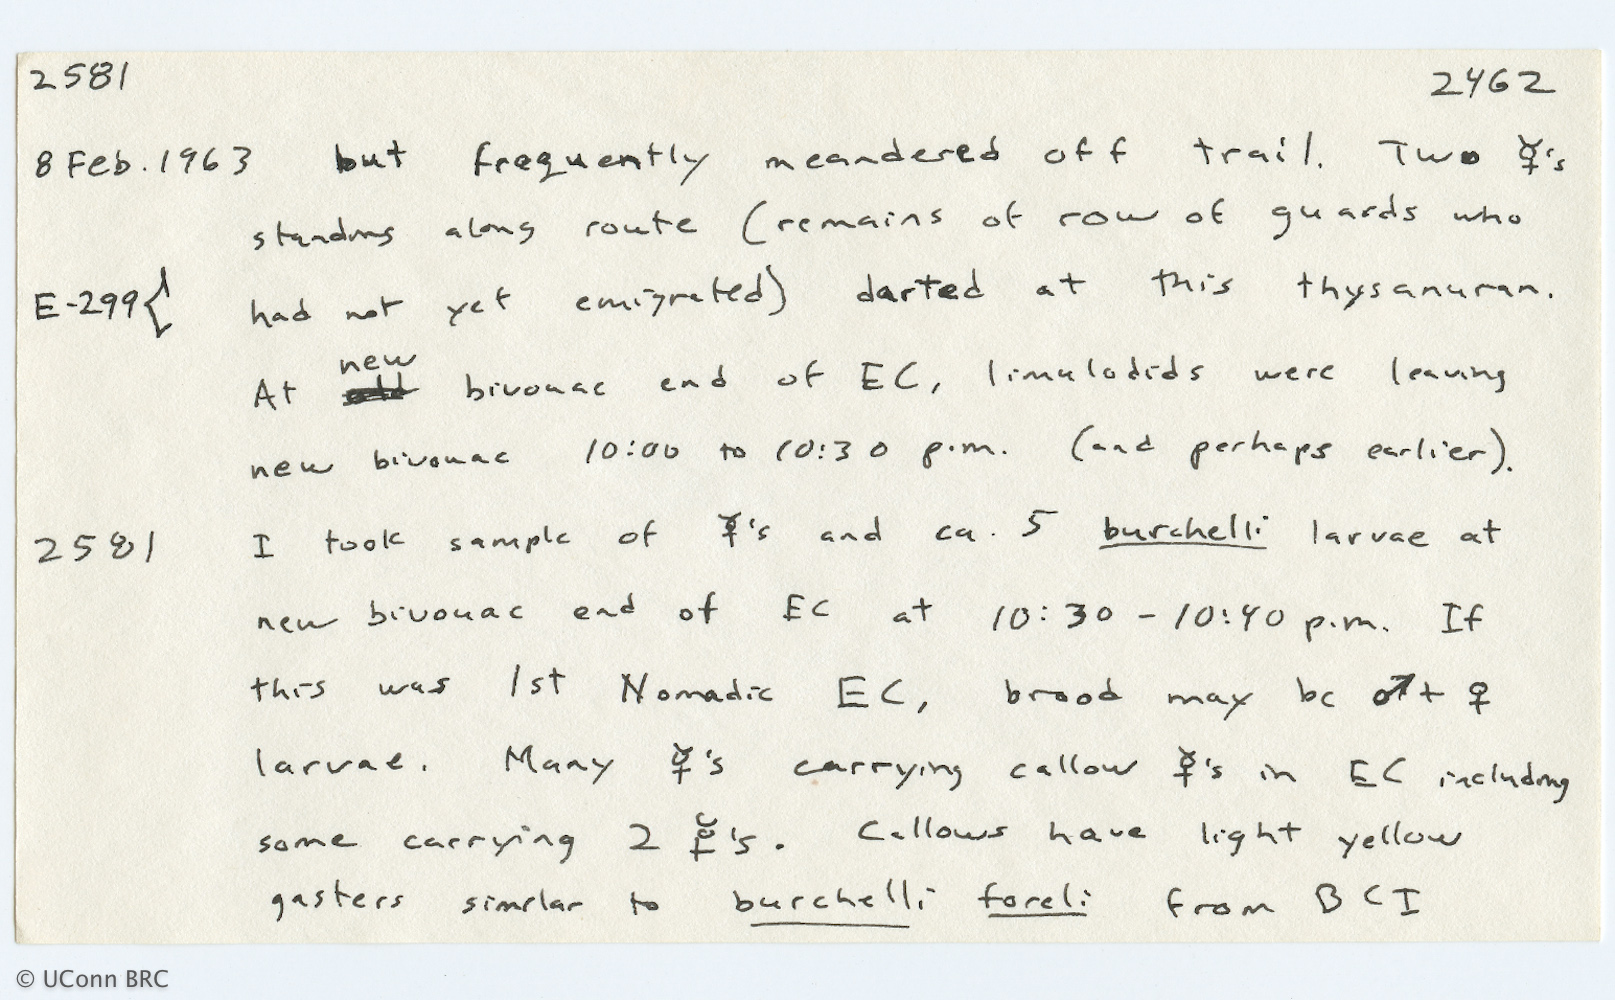 2581 2462
8 Feb. 1963 but frequently meandered off trail. Two ☿'s
standing along route (remains of row of guards who
E-299{ had not yet emigrated) darted at this thysanuran.
new
At old bivouac end of EC, limulodids were leaving
new bivouac 10:00 to 10:30 p.m. (and perhaps earlier).
2581 I took sample of ☿'s and ca. 5 burchelli larvae at
new bivouac end of EC at 10:30 - 10:40 p.m. If
this was 1st Nomadic EC, brood may be ♂ + ♀
larvae. Many ☿'s carrying callow ☿'s in EC including
some carrying 2 ☿'s. Callows have light yellow
gasters similar to burchelli foreli from BCI
© UConn BRC